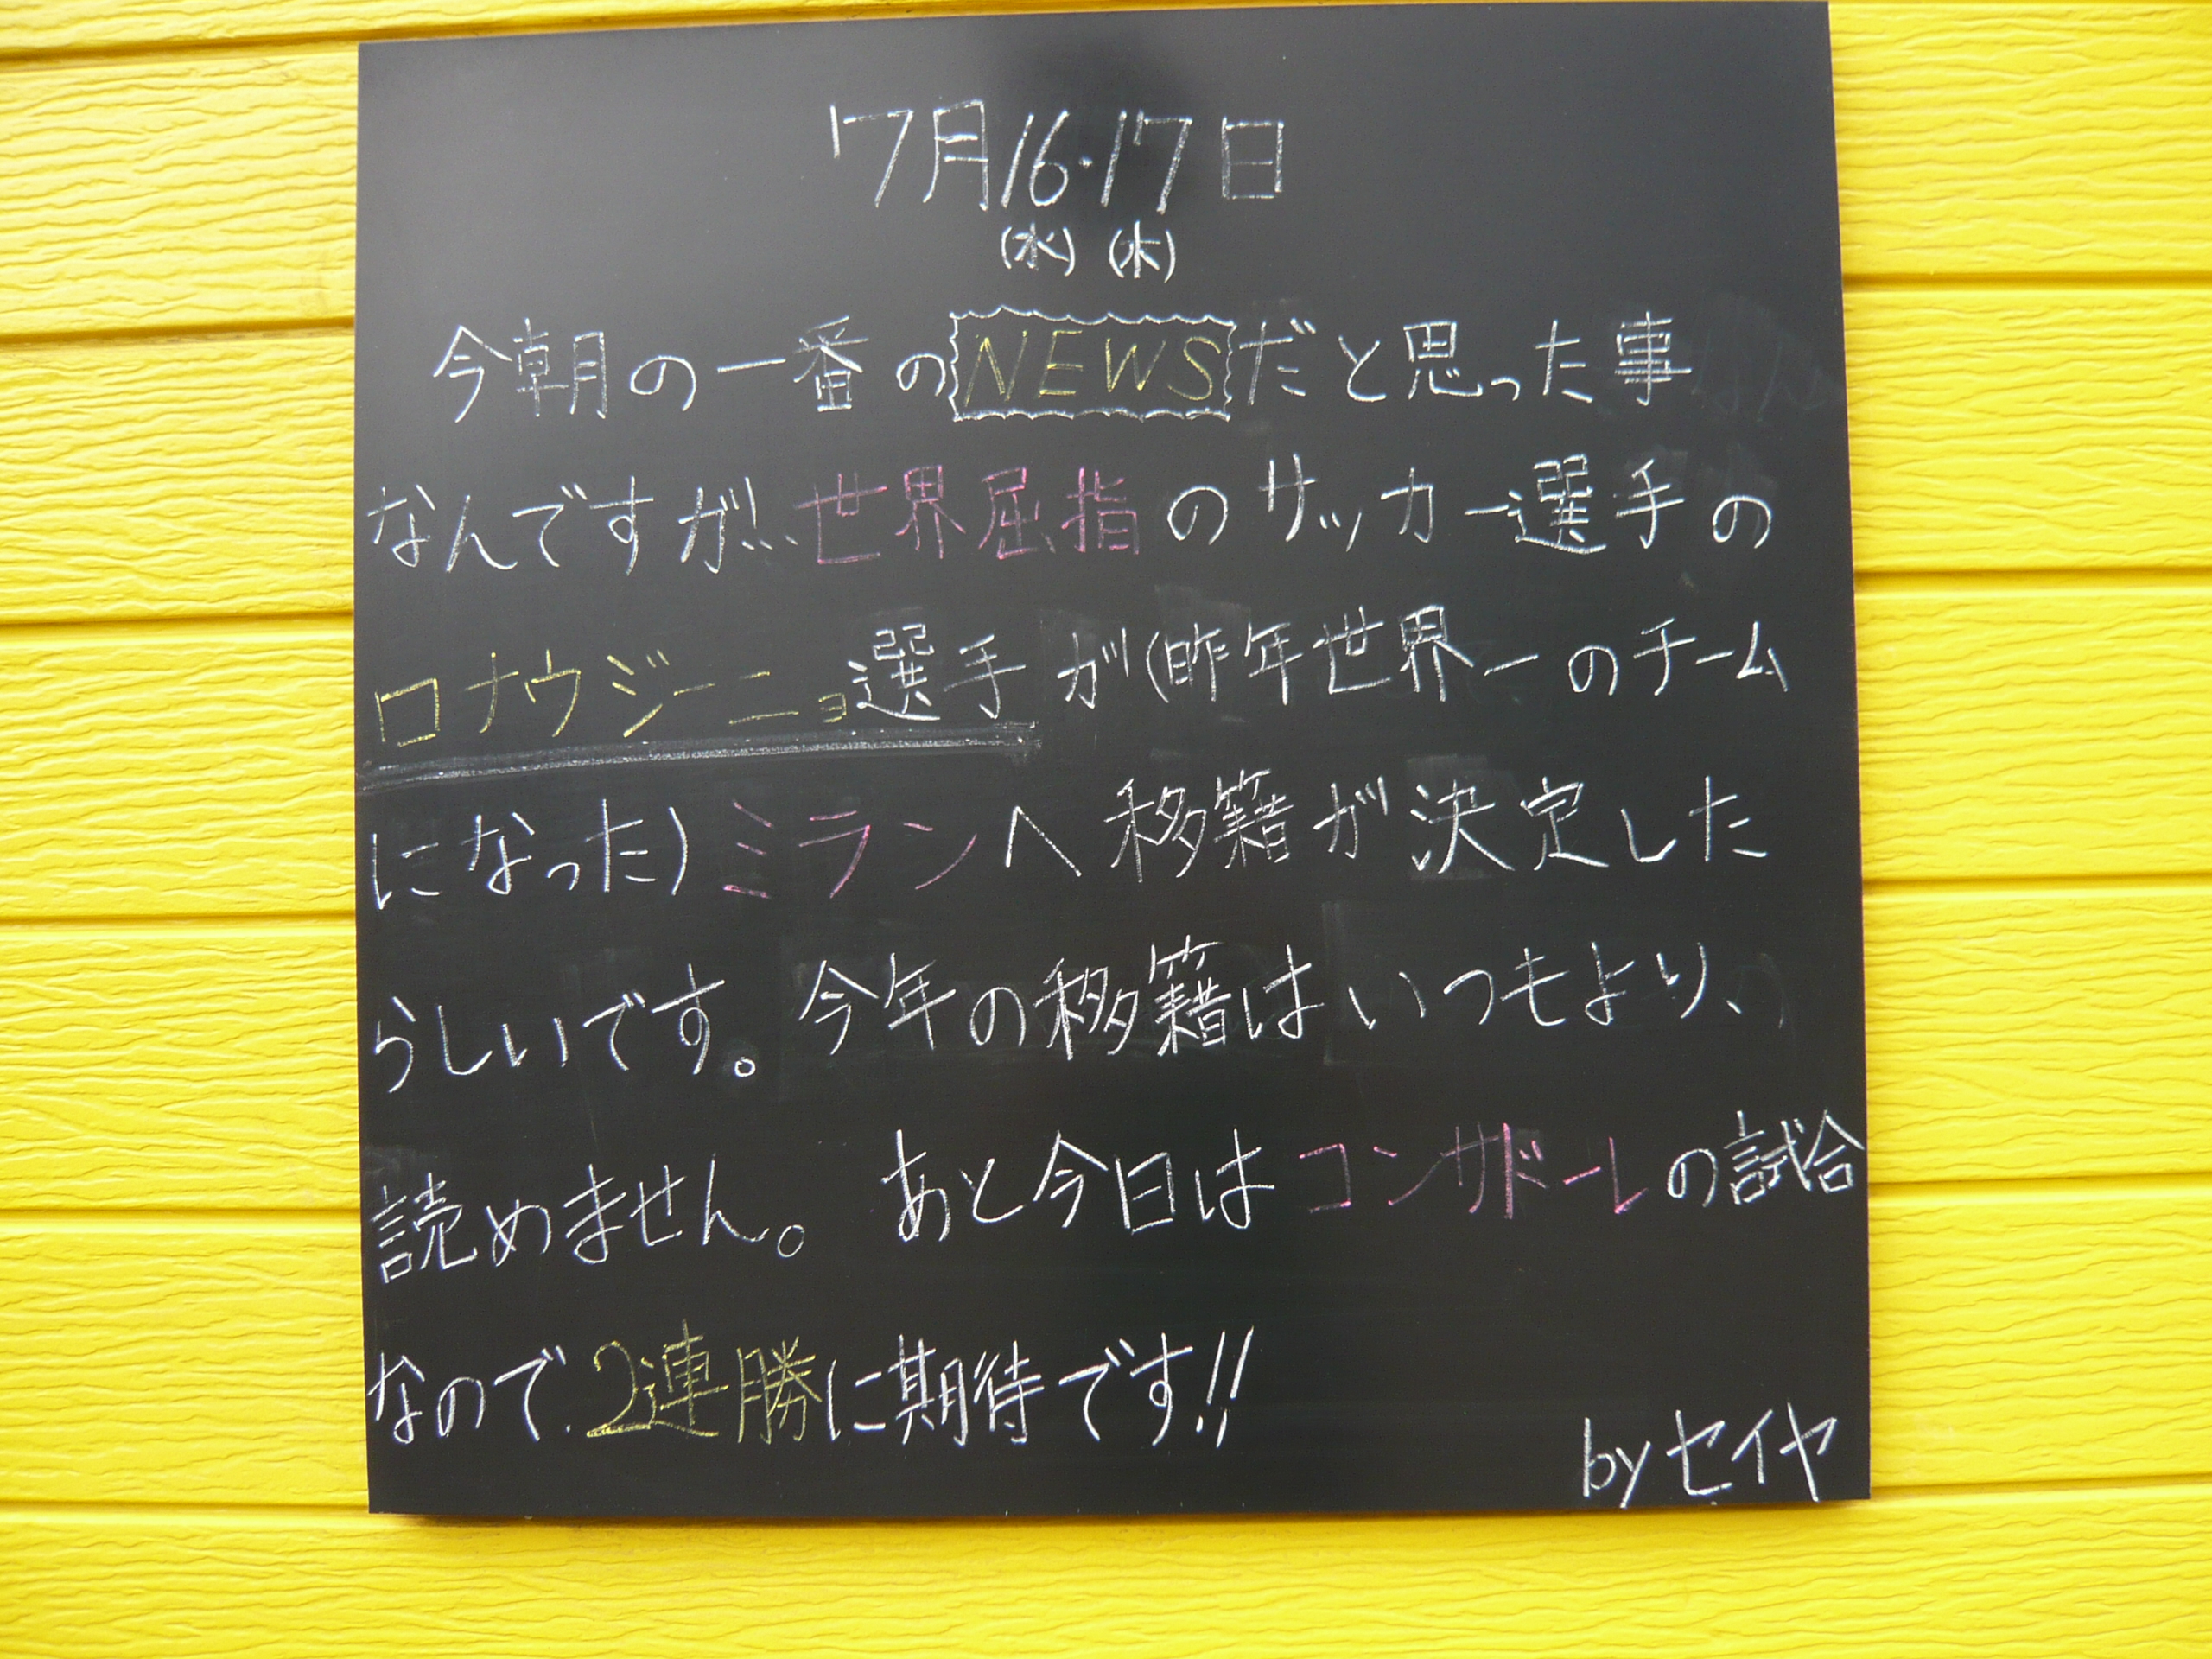 7月16・17日
(水)(木)
今朝の一番のNEWSだと思った事
なんですが…世界屈指のサッカー選手の
ロナウジーニョ選手が(昨年世界一のチーム
になった)ミランへ移籍が決定した
らしいです。今年の移籍はいつもより、
読めません。 あと今日はコンサドーレの試合
なので、2連勝に期待です!!
byセイヤ